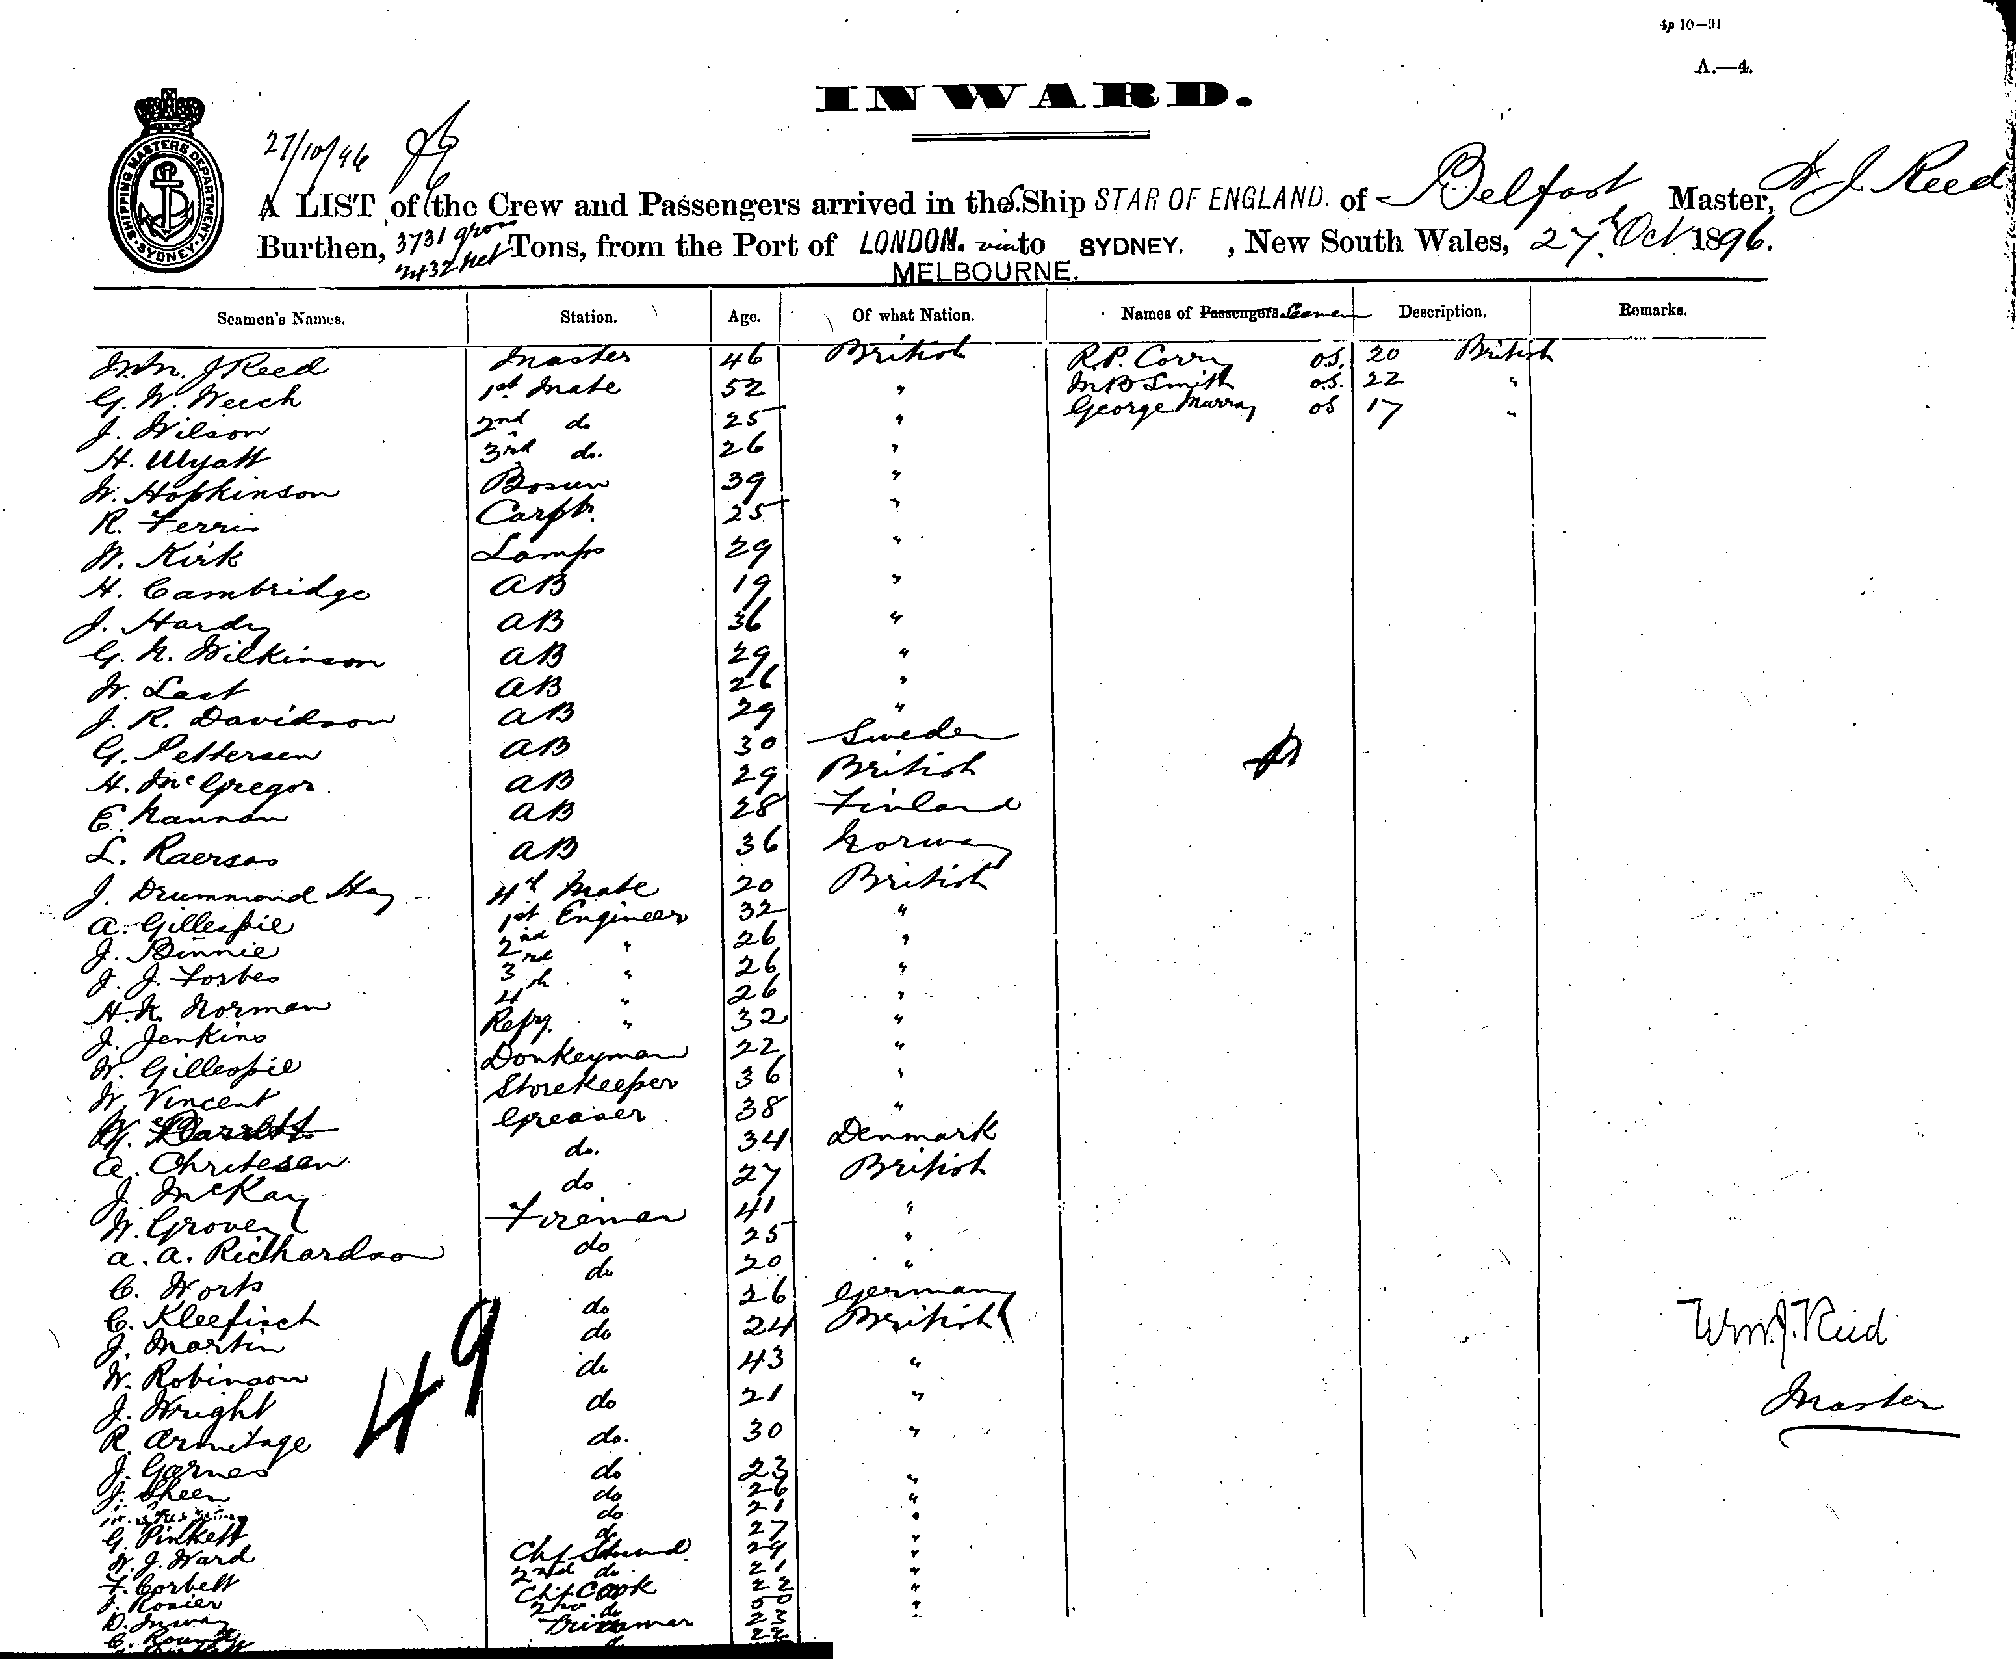 4p 10—91
A.—4.
INWARD.
SHIPPING MASTERS DEPARTMENT SYDNEY
27/10/96
A LIST of the Crew and Passengers arrived in the S.Ship STAR OF ENGLAND. of Belfast Master, W J Reed
Burthen, 3731 gross 2432 net Tons, from the Port of LONDON. via to SYDNEY. , New South Wales, 27th Oct 1896.
MELBOURNE.
Seamen's Names. Station. Age. Of what Nation. Names of Passengers Description. Remarks.
Wm. J Reed Master 46 British R.P. Corry O.S. 20 British
G. W. Veech 1st Mate 52 " W B Smith O.S. 22 "
J. Wilson 2nd do 25 " George Murray OS 17 "
H. Wyatt 3rd do. 26 "
W. Hopkinson Bosun 39 "
R. Ferris Carptr. 25 "
W. Kirk Lamps 29 "
H. Cambridge AB 19 "
J. Hardy AB 36 "
G. N. Wilkinson AB 29 "
W. Last AB 26 "
J. R. Davidson AB 29 "
G. Pettersen AB 30 Sweden
H. McGregor AB 29 British
E. Nannan AB 28 Finland
L. AB 36 Norway
J. Drummond Hay 4th Mate 20 British
A. Gillespie 1st Engineer 32 "
J. Binnie 2nd " 26 "
J. J. Forbes 3rd " 26 "
H. N. Norman 4th " 26 "
J. Jenkins Refg. " 32 "
W. Gillespie Donkeyman 22 "
W. Vincent Storekeeper 36 "
W. Barrett Greaser 38 "
A. Chritesen do. 34 Denmark
J. McKay do 27 British
W. Grover Fireman 41 "
A. A. Richardson do 25 "
C. Worts do 20 "
C. Kleefisch do 26 Germany
J. Martin do 24 British
W. Robinson do 43 "
J. Wright do 21 "
R. Armitage do. 30 "
J. Garnes do 23 "
J. Sheen do 26 "
do 21 "
G. Pinkett do 27 "
W. J. Ward Chf Stewd 29 "
F. Corbett 2nd do 21 "
J. Rosier Chf Cook "
D. 2nd do "
C. Trimmer
49
Wm. J. Reed
Master